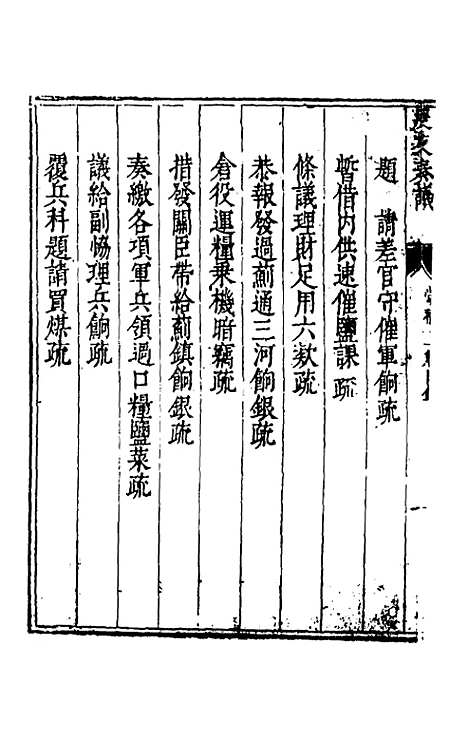 題　請差官守催軍餉疏
暫借內供速催鹽課疏
條議理財足用六款疏
恭報發過薊通三河餉銀疏
倉役運糧乘機暗竊疏
措發關臣帶給薊鎮餉銀疏
奏繳各項軍兵領過口糧鹽菜疏
議給副協理兵餉疏
覆兵科題請買煤疏